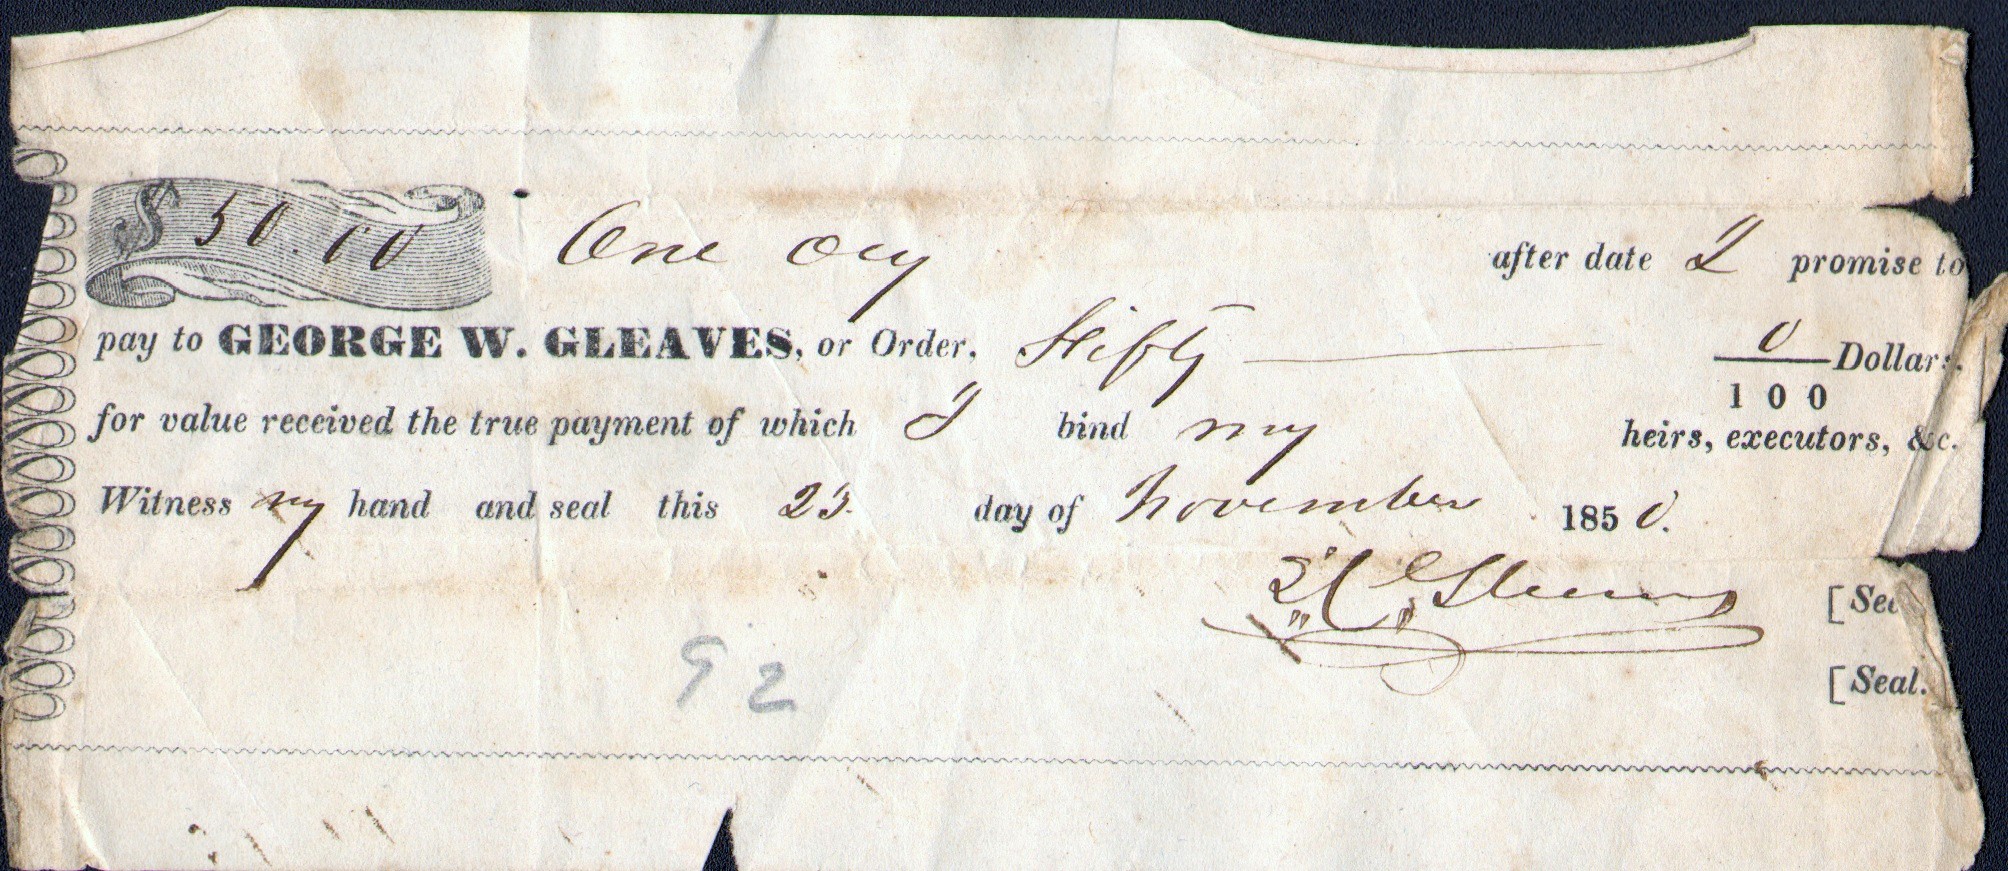 $ 50.00 One day after date I promise to
pay to GEORGE W. GLEAVES, or Order, Fifty 0/100 Dollars.
for value received the true payment of which I bind my heirs, executors, &c.
Witness my hand and seal this 23 day of November 1850.
[Sea
[Seal.
92